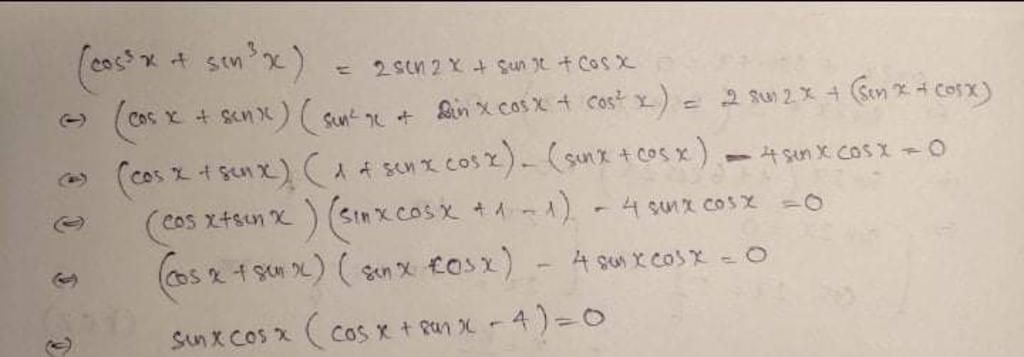 (cos³x + sin³x) = 2sin2x + sinx + cosx
⇔ (cosx + sinx)(sin²x + sinxcosx + cos²x) = 2sin2x + (sinx + cosx)
⇔ (cosx + sinx)(1 + sinxcosx) - (sinx + cosx) - 4sinxcosx = 0
⇔ (cosx + sinx)(sinxcosx + 1 - 1) - 4sinxcosx = 0
⇔ (cosx + sinx)(sinx cosx) - 4sinxcosx = 0
⇔ sinxcosx(cosx + sinx - 4) = 0